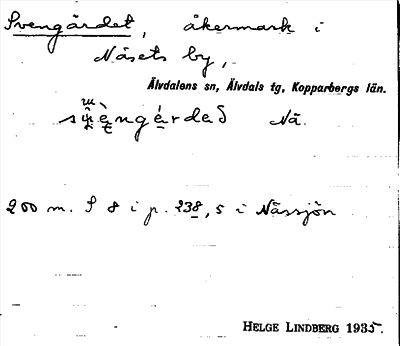 Svengärdet, åkermark i
Näsets by,
Älvdalens sn, Älvdals tg, Kopparbergs län.
Nä.
200 m. S 8 i p. 238, 5 i Nässjön
HELGE LINDBERG 1935.